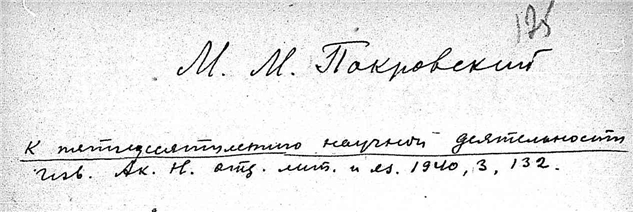 175
М. М. Покровский
К пятидесятилетию научной деятельности
Изв. Ак. Н. отд. лит. и яз. 1940, 3, 132.